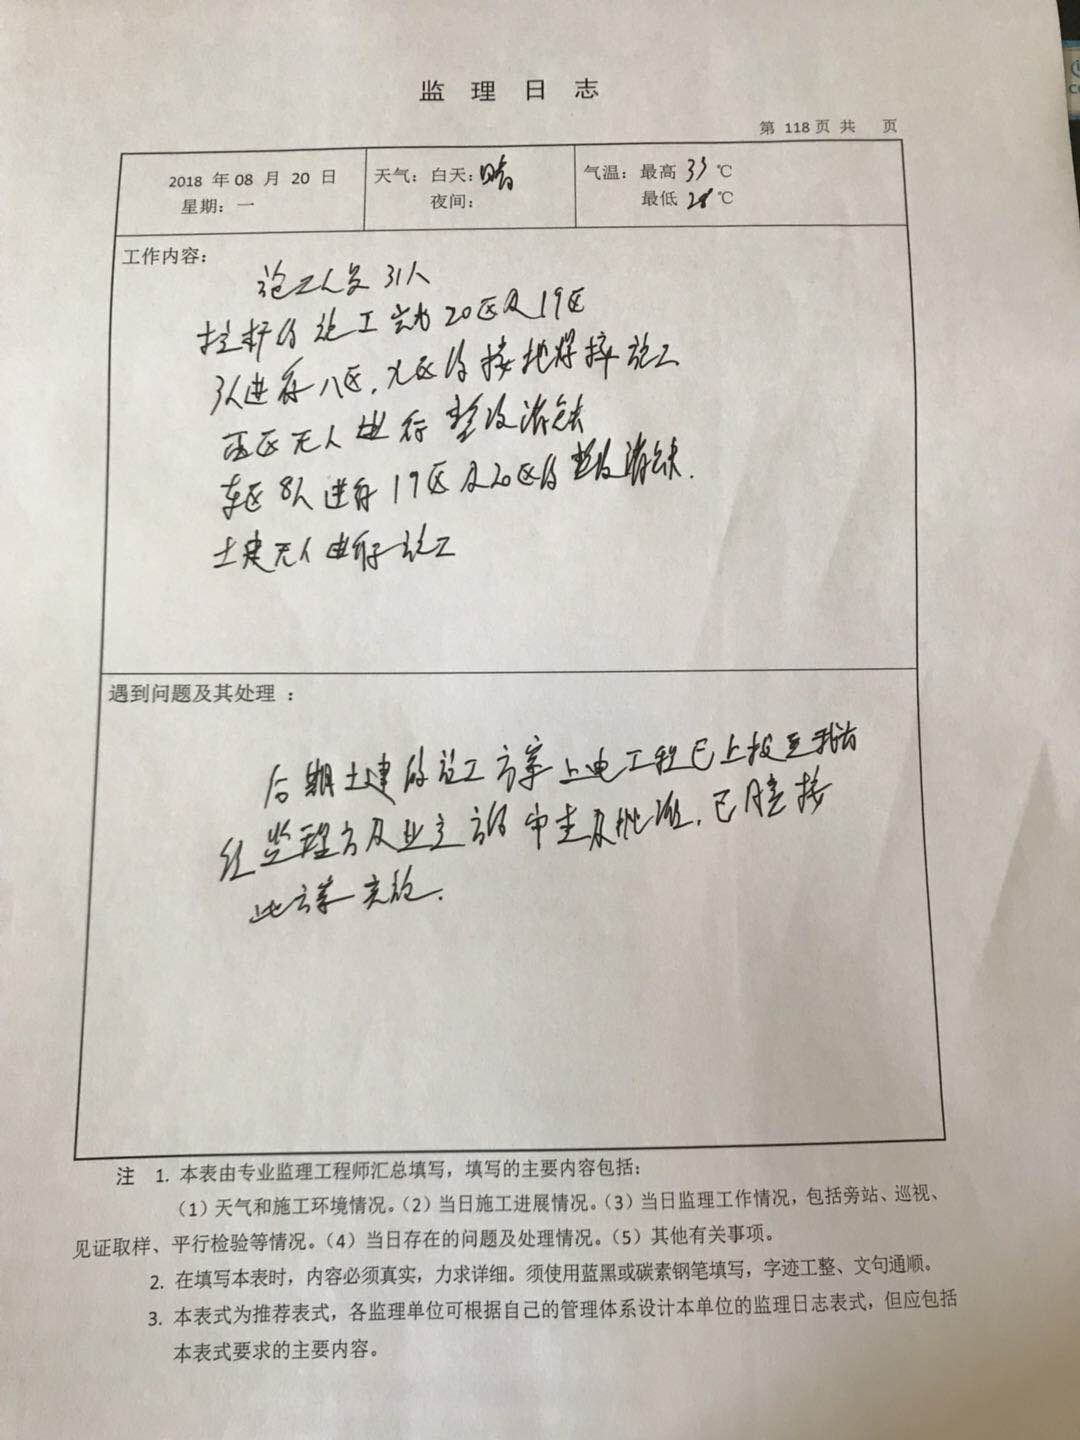 监理日志
第 118 页 共 页
2018 年 08 月 20 日
星期：一
天气：白天：晴
夜间：
气温：最高 33 ℃
最低 28 ℃
工作内容：
施工人员 31人
拉杆的施工 20区及19区
3人进行八区，九区的接地焊接施工
西区无人进行整改消缺
东区8人进行19区及20区的整改消缺.
土建无人进行施工
遇到问题及其处理：
后期土建的施工方案上电工程已上报至我方
经监理方及业主方的审查及批准，已
此方案实施.
注 1. 本表由专业监理工程师汇总填写，填写的主要内容包括：
（1）天气和施工环境情况。（2）当日施工进展情况。（3）当日监理工作情况，包括旁站、巡视、
见证取样、平行检验等情况。（4）当日存在的问题及处理情况。（5）其他有关事项。
2. 在填写本表时，内容必须真实，力求详细。须使用蓝黑或碳素钢笔填写，字迹工整、文句通顺。
3. 本表式为推荐表式，各监理单位可根据自己的管理体系设计本单位的监理日志表式，但应包括
本表式要求的主要内容。